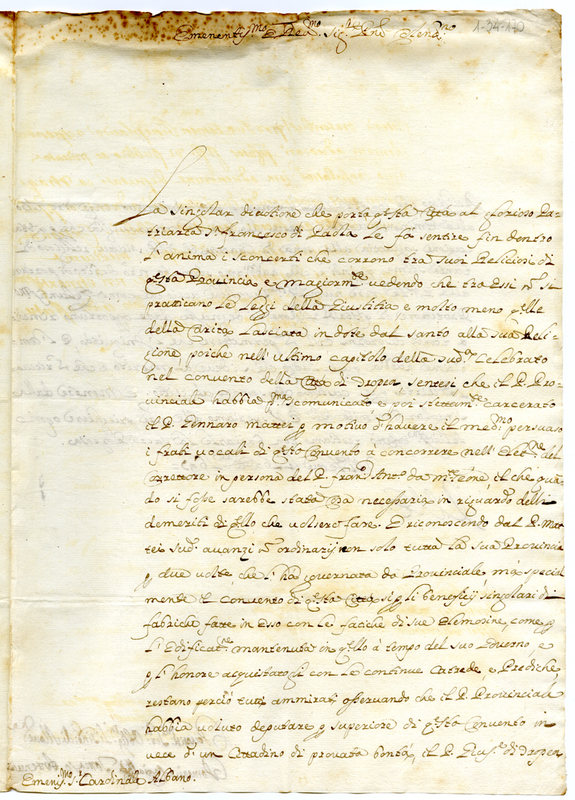 Eminentiss.mo e Rev.mo Sig.re P.ne Colend.mo
1-34-170
La singolar divotione che porta q.sta Città al glorioso Pa-
triarca S. Francesco di Paola le fà sentire fin dentro
l'anima i sconcerti che corrono tra suoi Religiosi di
q.sta Provincia e magiorm.te vedendo che tra essi n. si
pratticano le leggi della Giustitia e molto meno q.lle
della Carità lasciata in dote dal santo alla sua Reli-
gione poiche nell'ultimo capitolo della sud.a celebrato
nel convento della Città di Tropea sentesi che il P. Pro-
vinciale habbia scomunicato, e poi carcerato
il P. Gennaro Mattei p motivo d'havere il med.mo persuaso
i frati vocali di q.sto Convento à concorrere nell'Elet.ne del
Correttore in persona del P. Fran.co Ant.o da il che quã-
do si fosse sarebbe stata necessaria in riguardo delli
demeriti di q.llo che volsero fare. E riconoscendo dal P. Mat-
tei sud.o avanzi n. ordinarij non solo tutta la sua Provincia
p due volte che l'ha governata da Provinciale mà special-
mente il convento di q.sta Città si p gli beneficij singolari di
fabriche fatte in esso con le fatiche di sue elemosine, come p
l'edificat.ne mantenuta in q.llo à tempo del suo Governo, e
p l'honore acquistato si con le continue Catrede, e Prediche,
restano perciò tutti ammirati osservando che il P. Provinciale
habbia voluto deputare p superiore di q.sto Convento in
vece d'un Cittadino di provata bontà, il P. di Tropea
Eminen.mo S.r Cardinale Albano.